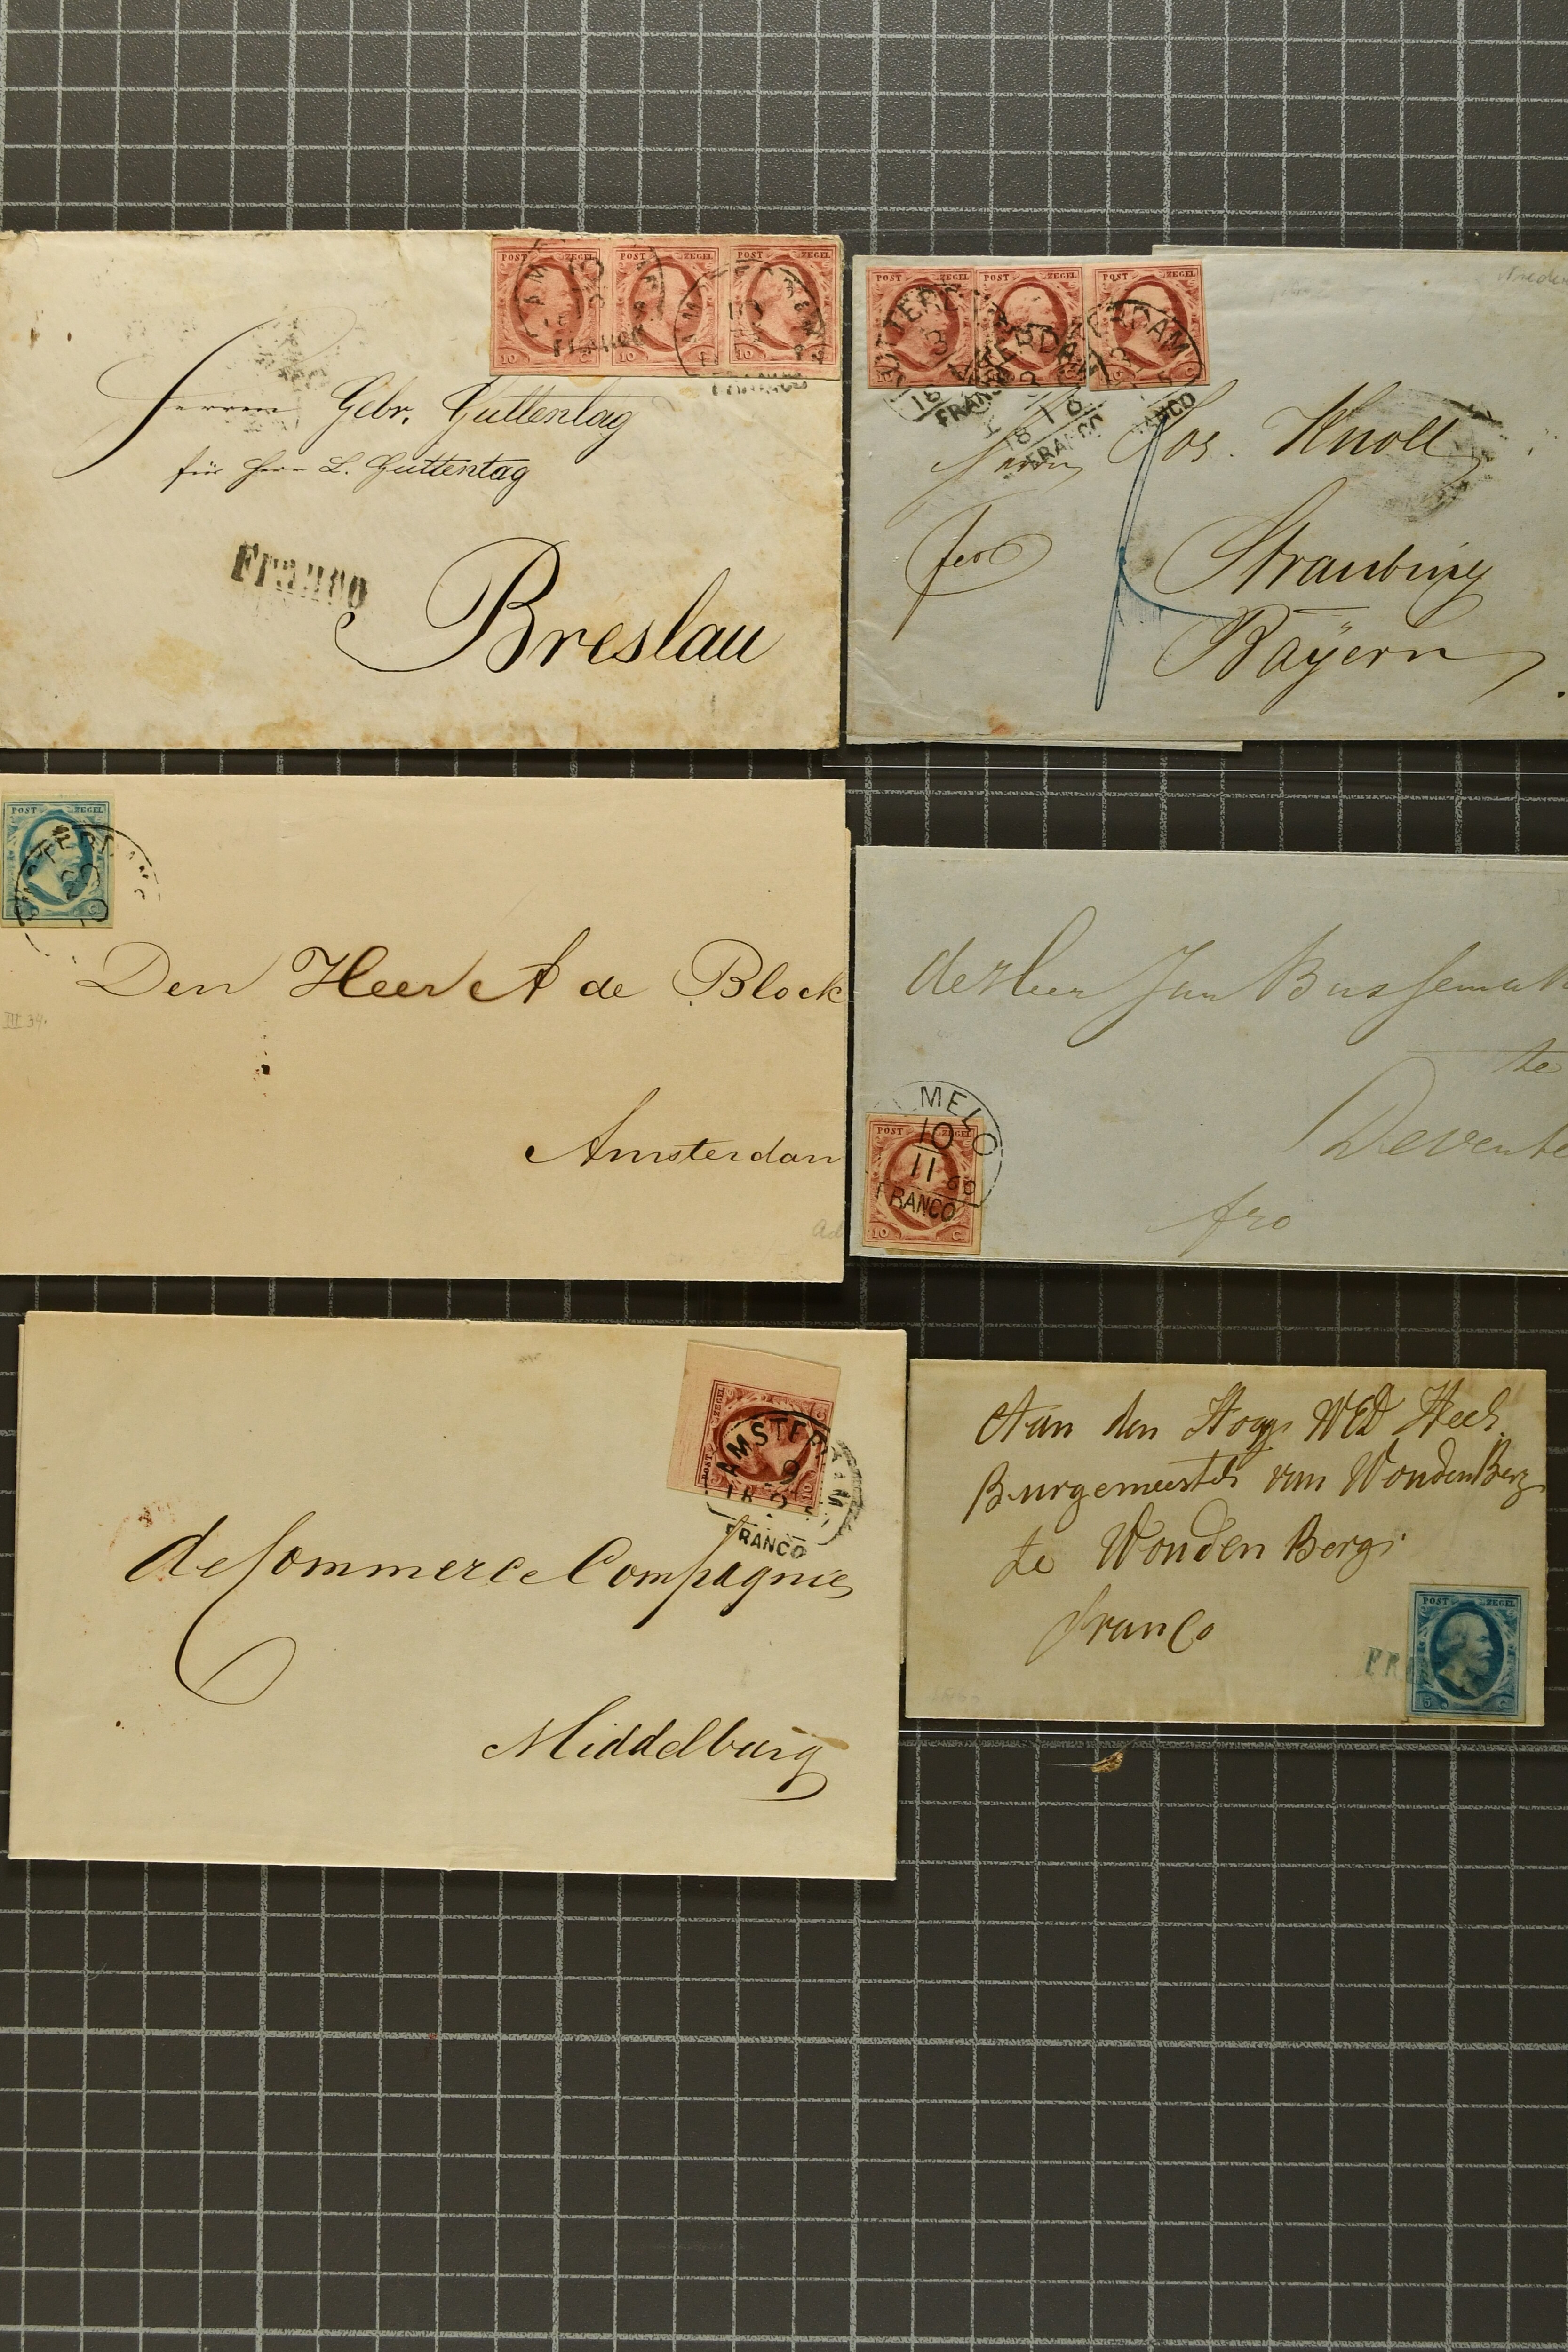 POST ZEGEL POST ZEGEL POST ZEGEL
10 C 10 10
FRANCO
FRANCO
Herren Gebr. Guttentag
für Herrn L. Guttentag
Franco
Breslau
POST ZEGEL POST ZEGEL POST ZEGEL
ROTTERD
3
18
FRANCO
FRANCO
Herrn Jos. Knoll
fco
Straubing
Bayern
POST ZEGEL
Den Heer A de Block
III 34.
Amsterdam
de Heer Jan Bussemak
te
Devente
fro
MELO
10
11 60
FRANCO
POST ZEGEL
10 C
POST ZEGEL
10 C
AMSTERDAM
9
18
FRANCO
de Commerce Compagnie
Middelburg
Aan den
Burgemeester van WoudenBerg
te Wouden Berg
franco
FR
POST ZEGEL
5 C